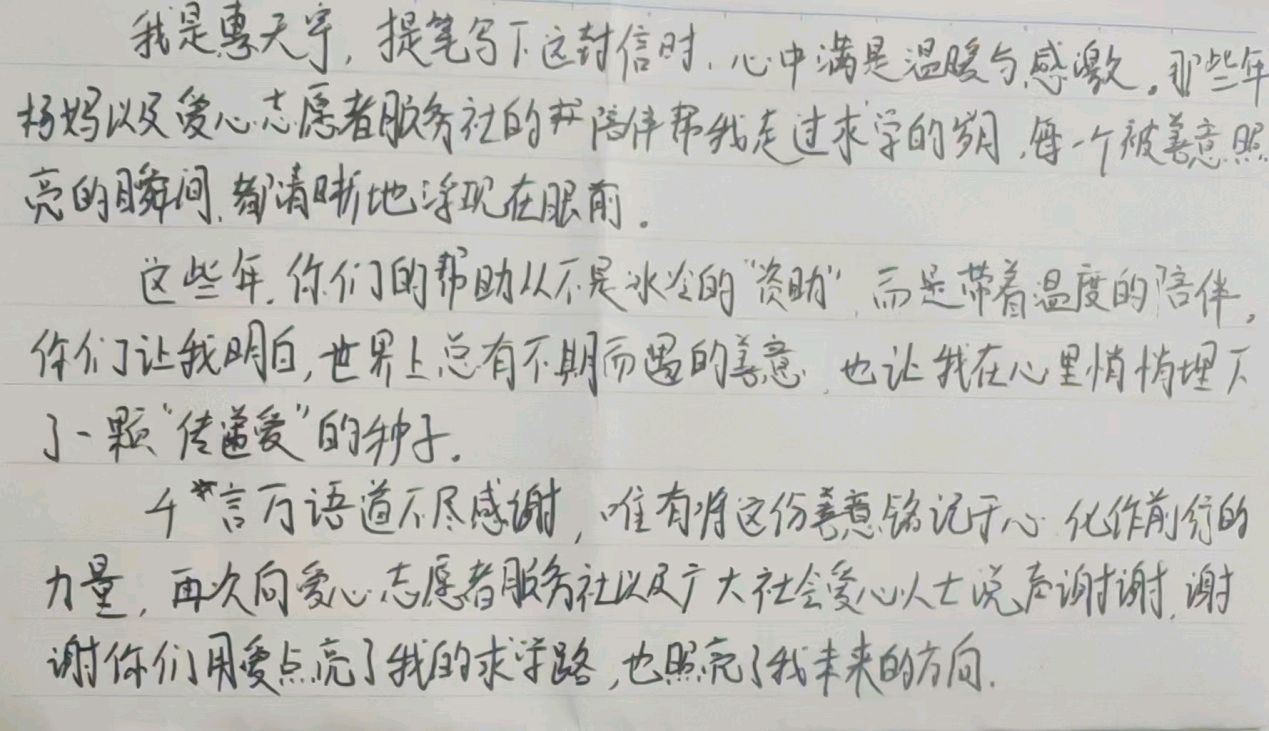 我是惠天宇，提笔写下这封信时，心中满是温暖与感激。那些年
杨妈以及爱心志愿者服务社的陪伴帮我走过求学的岁月，每一个被善意照
亮的瞬间，都清晰地浮现在眼前。
这些年，你们的帮助从不是冰冷的“资助”，而是带着温度的陪伴，
你们让我明白，世界上总有不期而遇的善意，也让我在心里悄悄埋下
了一颗“传递爱”的种子。
千言万语道不尽感谢，唯有将这份善意铭记于心 化作前行的
力量，再次向爱心志愿者服务社以及广大社会爱心人士说声谢谢，谢
谢你们用爱点亮了我的求学路，也照亮了我未来的方向.